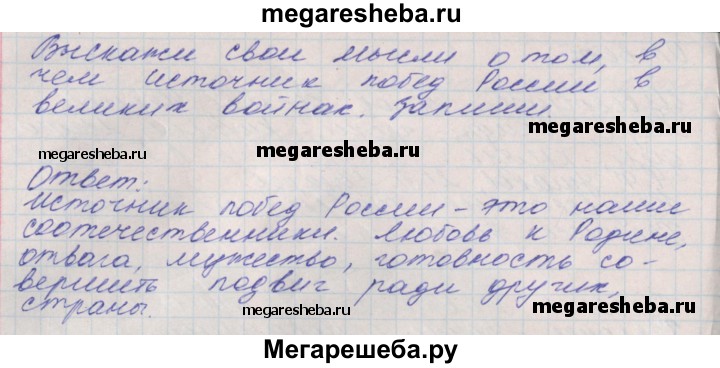 megaresheba.ru
Выскажи свои мысли о том, в
чем источник побед России в
великих войнах. Запиши.
megaresheba.ru
megaresheba.ru
megaresheba.ru
Ответ:
Источник побед России – это наши
соотечественники. Любовь к Родине,
отвага, мужество, готовность со-
вершить подвиг ради других,
страны.
megaresheba.ru
megaresheba.ru
Мегарешеба.ру